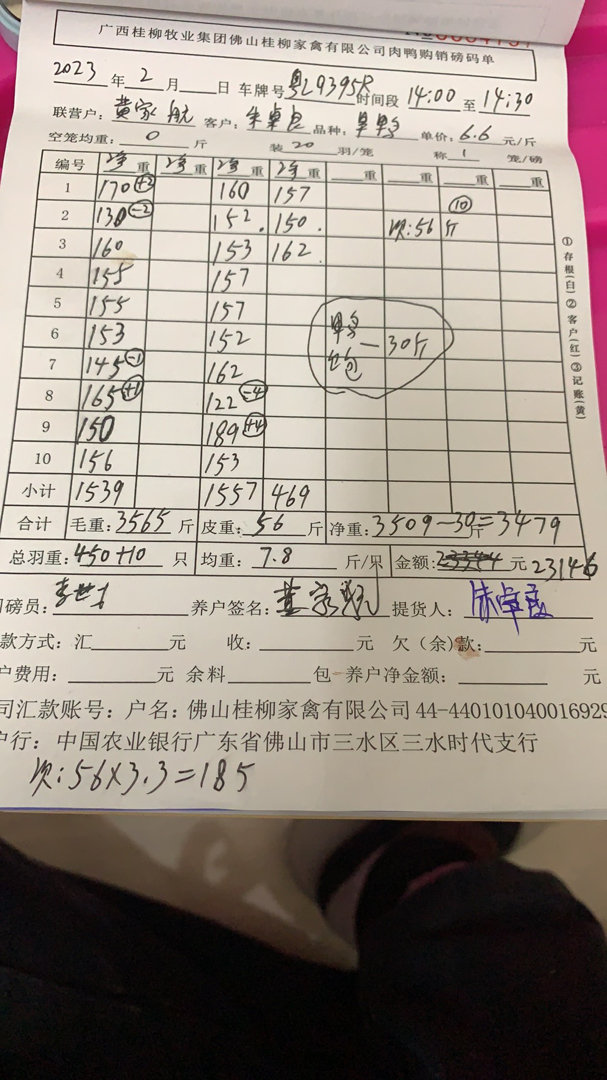 广西桂柳牧业集团佛山桂柳家禽有限公司肉鸭购销磅码单
2023年2月 日 车牌号粤L93958 时间段14:00至14:30
联营户:黄家航 客户:朱卓良 品种: 单价:6.6元/斤
空笼均重:0斤 装20羽/笼 称1笼/磅
编号 重 重 重 重 重 重 重 重
1 170(+2) 160 157
2 130(-2) 152. 150. 次:56斤 (10)
3 160 153 162.
4 155 157
5 155 157
6 153 152
7 145(-1) 162
8 165(+1) 122(-4)
9 150 189(+4)
10 156 153
包 — 30斤
小计 1539 1557 469
合计 毛重:3565斤 皮重:56斤 净重:3509-30=3479斤
总羽重:450+10只 均重:7.8斤/只 金额: 元 23146
磅员: 养户签名:黄家航 提货人:朱卓良
款方式:汇 元 收: 元 欠(余)款: 元
户费用: 元 余料 包 养户净金额: 元
司汇款账号:户名:佛山桂柳家禽有限公司44-440101040016929
户行:中国农业银行广东省佛山市三水区三水时代支行
次:56×3.3=185
①存根(白)②客户(红)③记账(黄)